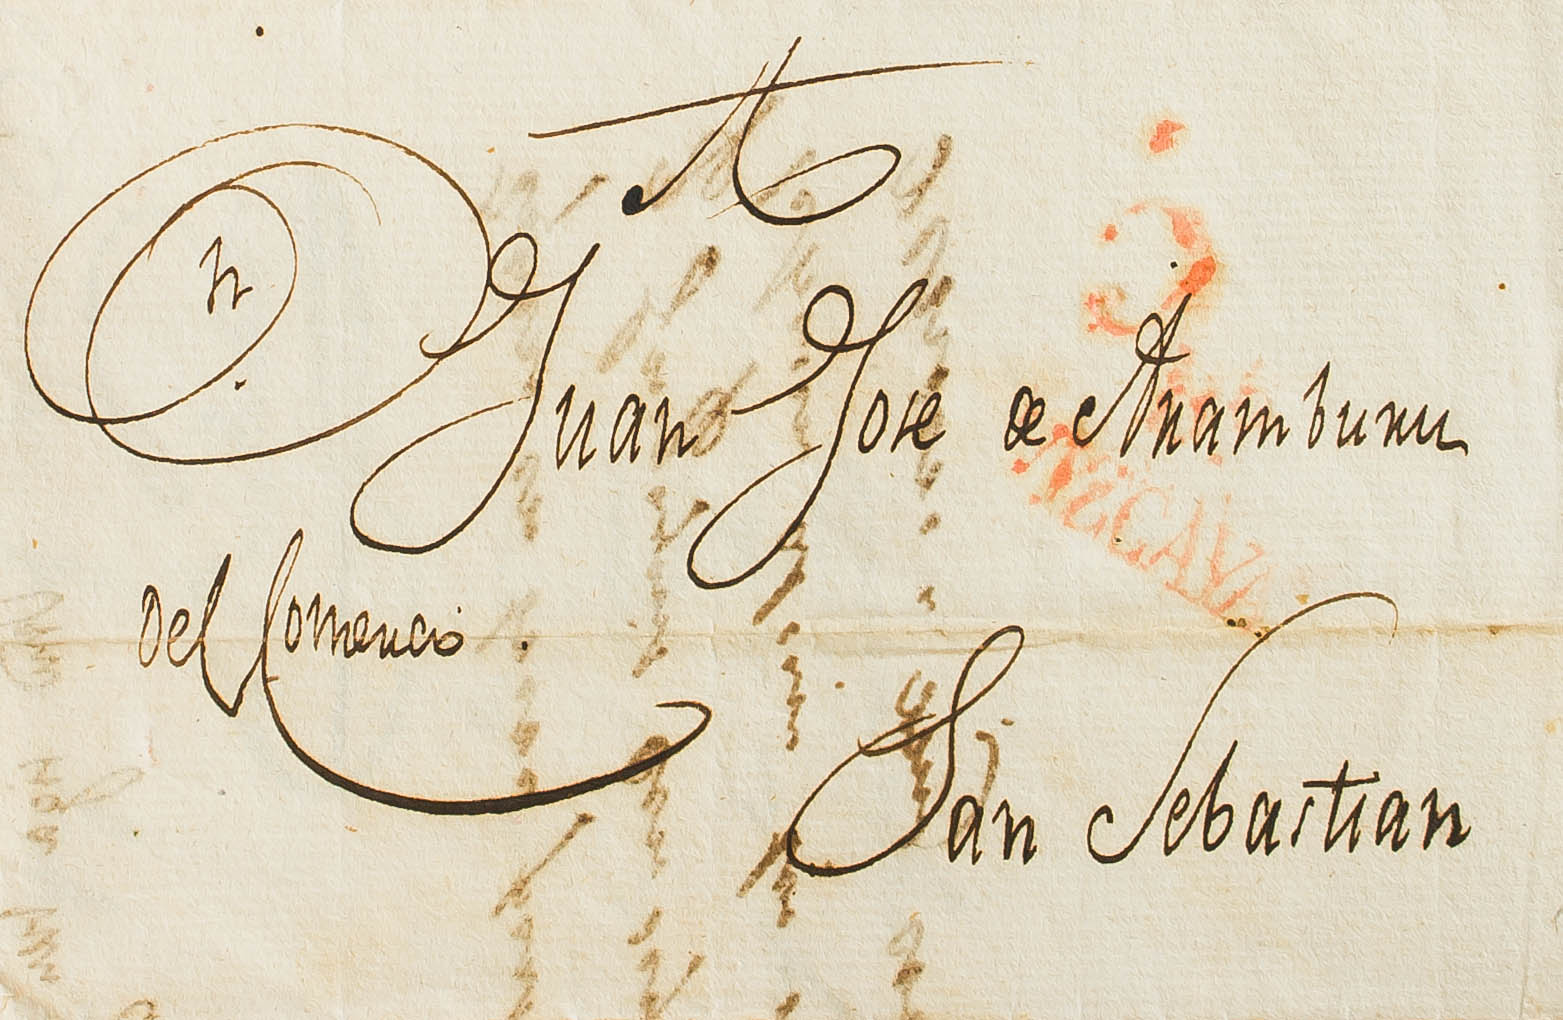 A
Dn. Juan Jose de Aramburu
del Comercio.
San Sebastian
VIZCAYA